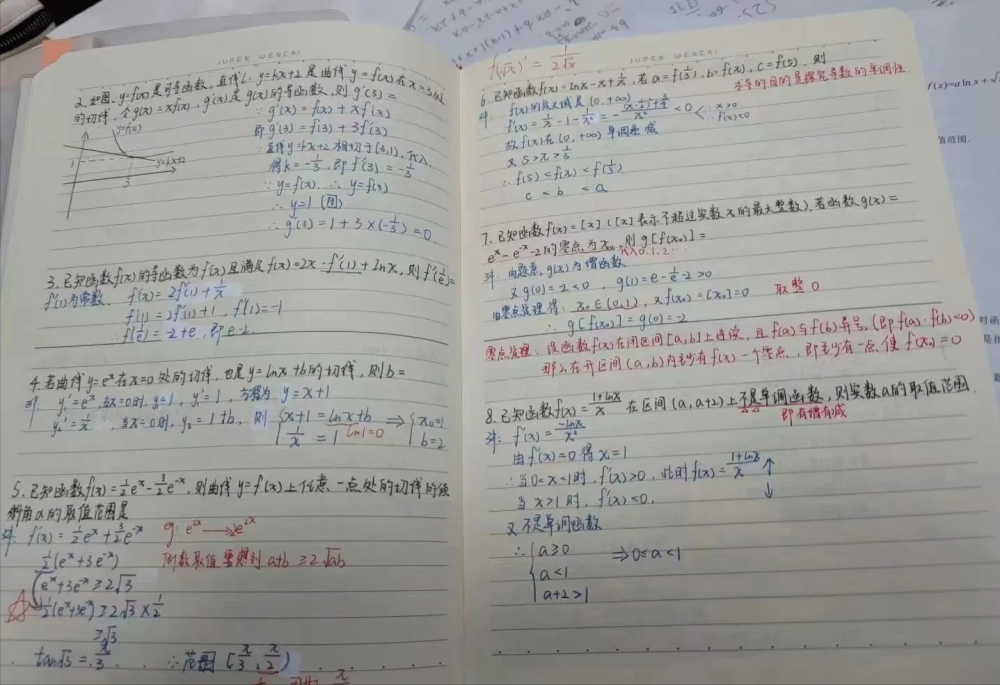 JUREN WENCAI
2.如图,y=f(x)是可导函数,直线l:y=kx+2是曲线y=f(x)在x=3处
的切线,令g(x)=xf(x),g'(x)是g(x)的导函数,则g'(3)=
y=f(x)
y=kx+2
1
3
∵g'(x)=f(x)+xf'(x)
即g'(3)=f(3)+3f'(3)
∵直线y=kx+2相切于(3,1),代入
得k=-1/3,即f'(3)=-1/3
∵y=f(x),∴y=f(3)
∴y=1(图)
∴g'(3)=1+3×(-1/3)=0
3.已知函数f(x)的导函数为f'(x)且满足f(x)=2x·f'(1)+lnx,则f'(1/e)=
f'(1)为常数. f'(x)=2f'(1)+1/x
f'(1)=2f'(1)+1, f'(1)=-1
∴f'(1/e)=-2+e,即e-2
4.若曲线y=e^x在x=0处的切线,也是y=lnx+b的切线,则b=
y₁'=e^x,当x=0时,y=1,y'=1,方程为 y=x+1
y₂'=1/x,当x=0时,y₂=1+b,则 {x+1=lnx+b ⇒ {x₀=1
1/x=1 ln1=0 b=2
5.已知函数f(x)=1/2e^x-3/2e^-x,则曲线y=f(x)上任意一点处的切线的倾
斜角α的取值范围是
解:f'(x)=1/2e^x+3/2e^-x
g:e^2x→2e^2x
1/2(e^x+3e^-x)
问数取值要想到 a+b≥2√ab
e^x+3e^-x≥2√3
1/2(e^x+3e^-x)≥2√3×1/2
≥√3
tan√3=π/3 ∴范围[π/3,π/2)
f(√x)'=1/2√x
JUREN WENCAI
6.已知函数f(x)=lnx-x+1/x,若a=f(1/3),b=f(π),c=f(5),则
求导的目的是探究导数的单调性
解 f(x)的定义域是(0,+∞)
f'(x)=1/x-1-1/x²=-((x-1/2)²+3/4)/x²<0 x>0
f'(x)<0
故f(x)在(0,+∞)单调递减
又5>π>1/3
∴f(5)<f(π)<f(1/3)
c<b<a
7.已知函数f(x)=[x]([x]表示不超过实数x的最大整数).若函数g(x)=
e^x-e^-x-2的零点为x₀,则g[f(x₀)]=
代入0.1.2…
解:由题意,g(x)为增函数
又g(0)=-2<0,g(1)=e-1/e-2>0
由零点定理得:x₀∈(0,1),又f(x₀)=[x₀]=0 取整0
∴g[f(x₀)]=g(0)=-2
零点定理:设函数f(x)在闭区间[a,b]上连读,且f(a)与f(b)异号,(即f(a)·f(b)<0)
那么在开区间(a,b)内至少有f(x)一个零点,即至少有一点使f(x₀)=0
8.已知函数f(x)=(1+lnx)/x 在区间(a,a+2)上不是单调函数,则实数a的取值范围
即有增有减
解:f'(x)=-lnx/x²
由f'(x)=0得x=1
∴当0<x<1时,f'(x)>0,此时f(x)=(1+lnx)/x ↑
当x>1时,f'(x)<0. ↓
又不是单调函数
∴{a≥0 ⇒0≤a<1
a<1
a+2>1
f(x)=a ln x+
值范围.